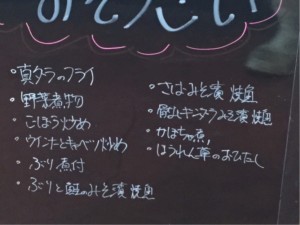 おそうざい
・真タラのフライ
・野菜煮物
・ごぼう炒め
・ウインナーとキャベツ炒め
・ぶり煮付
・ぶりと鮭のみそ漬焼魚
・さばみそ漬焼魚
・骨なしキングみそ漬焼魚
・かぼちゃ煮
・ほうれん草のおひたし